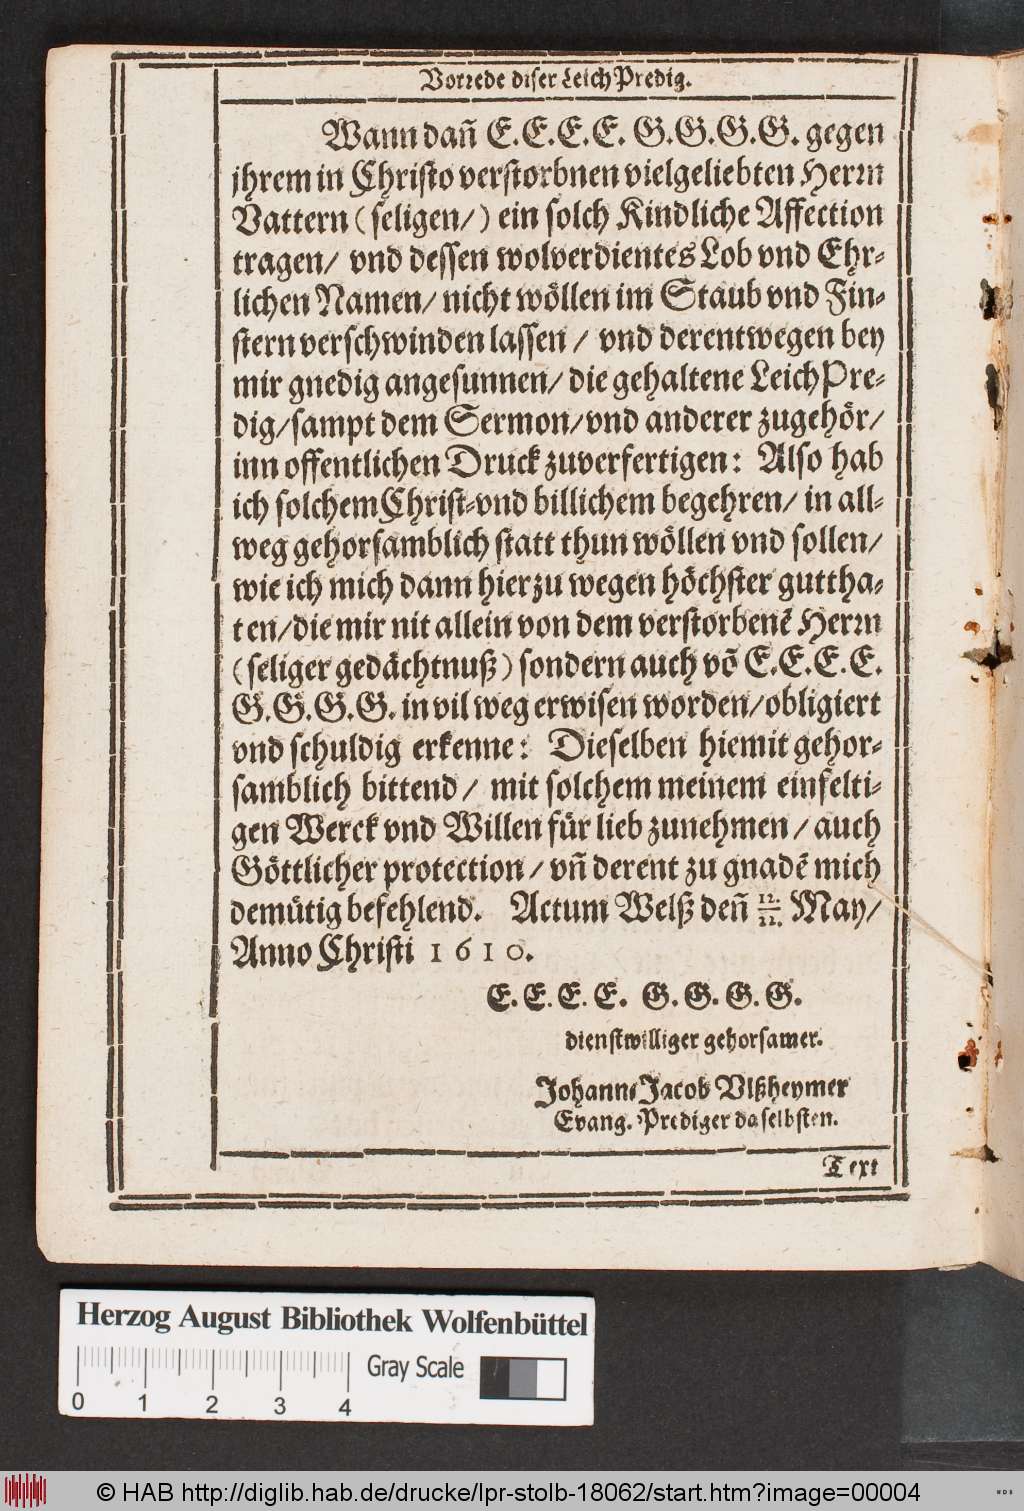 Vorrede diser LeichPredig.
Wann dañ E.E.E.E. G.G.G.G. gegen
jhrem in Christo verstorbnen vielgeliebten Herrn
Vattern (seligen/) ein solch Kindliche Affection
tragen/ vnd dessen wolverdientes Lob vnd Ehr-
lichen Namen/ nicht wöllen im Staub vnd Fin-
stern verschwinden lassen / vnd derentwegen bey
mir gnedig angesunnen/ die gehaltene LeichPre-
dig/sampt dem Sermon/vnd anderer zugehör/
inn offentlichen Druck zuverfertigen: Also hab
ich solchem Christ-vnd billichem begehren/ in all-
weg gehorsamblich statt thun wöllen vnd sollen/
wie ich mich dann hierzu wegen höchster guttha-
ten/die mir nit allein von dem verstorbenẽ Herrn
(seliger gedächtnuß) sondern auch võ E.E.E.E.
G.G.G.G. in vil weg erwisen worden/obligiert
vnd schuldig erkenne: Dieselben hiemit gehor-
samblich bittend / mit solchem meinem einfelti-
gen Werck vnd Willen für lieb zunehmen / auch
Göttlicher protection / vñ derent zu gnadẽ mich
demütig befehlend. Actum Welß deñ 12./22. May/
Anno Christi 1610.
E. E. E. E. G. G. G. G.
dienstwilliger gehorsamer.
Johann Jacob Vlßheymer
Evang. Prediger daselbsten.
Text
Herzog August Bibliothek Wolfenbüttel
Gray Scale
0 1 2 3 4
© HAB http://diglib.hab.de/drucke/lpr-stolb-18062/start.htm?image=00004